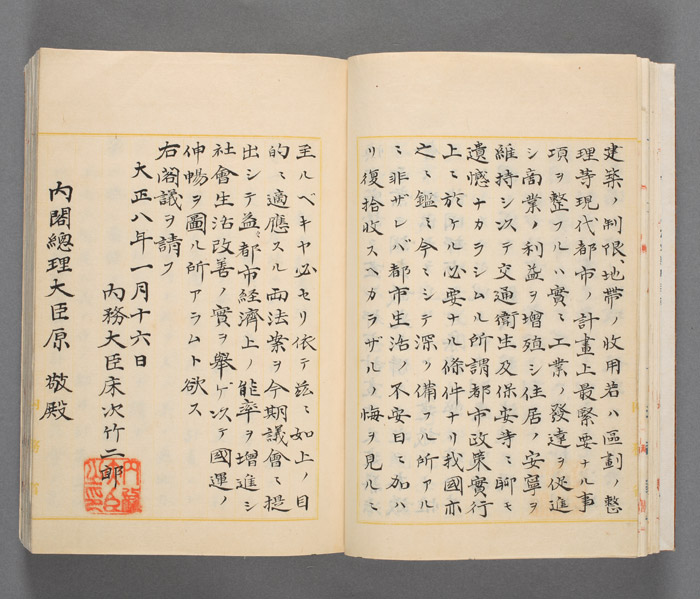 建築ノ制限、地帶ノ收用若ハ區劃ノ整
理等現代都市ノ計畫上最緊要ナル事
項ヲ整フルハ實ニ工業ノ發達ヲ促進
シ商業ノ利益ヲ增殖シ住居ノ安寧ヲ
維持シ以テ交通衞生及保安等ニ聊モ
遺憾ナカラシムル所謂都市政策實行
上ニ於ケル必要ナル條件ナリ我國亦
之ニ鑑ミ今ニシテ深ク備フル所アル
ニ非ザレバ都市生活ノ不安日ニ加ハ
リ復拾收スヘカラザルノ悔ヲ見ルニ
至ルベキヤ必セリ依テ玆ニ如上ノ目
的ニ適應スル兩法案ヲ今期議會ニ提
出シテ益〻都市經濟上ノ能率ヲ增進シ
社會生活改善ノ實ヲ擧ゲ以テ國運ノ
伸暢ヲ圖ル所アラムト欲ス
右閣議ヲ請フ
大正八年一月十六日
內務大臣床次竹二郎
內閣總理大臣原 敬殿